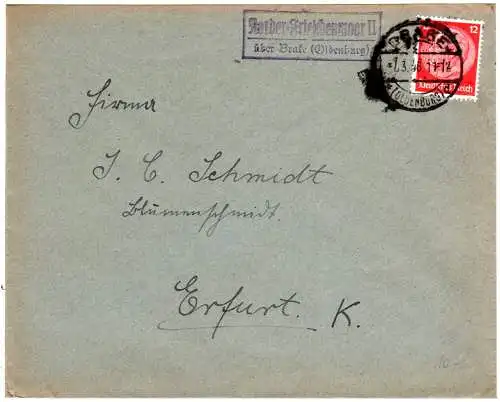 Außerdeich-Frieschenmoor II
über Brake (Oldenburg)
BRAKE
-7.3.36 11-12
(OLDENBURG)
12
Deutsches Reich
Firma
J. C. Schmidt
Blumenschmidt.
Erfurt. K.
10.-